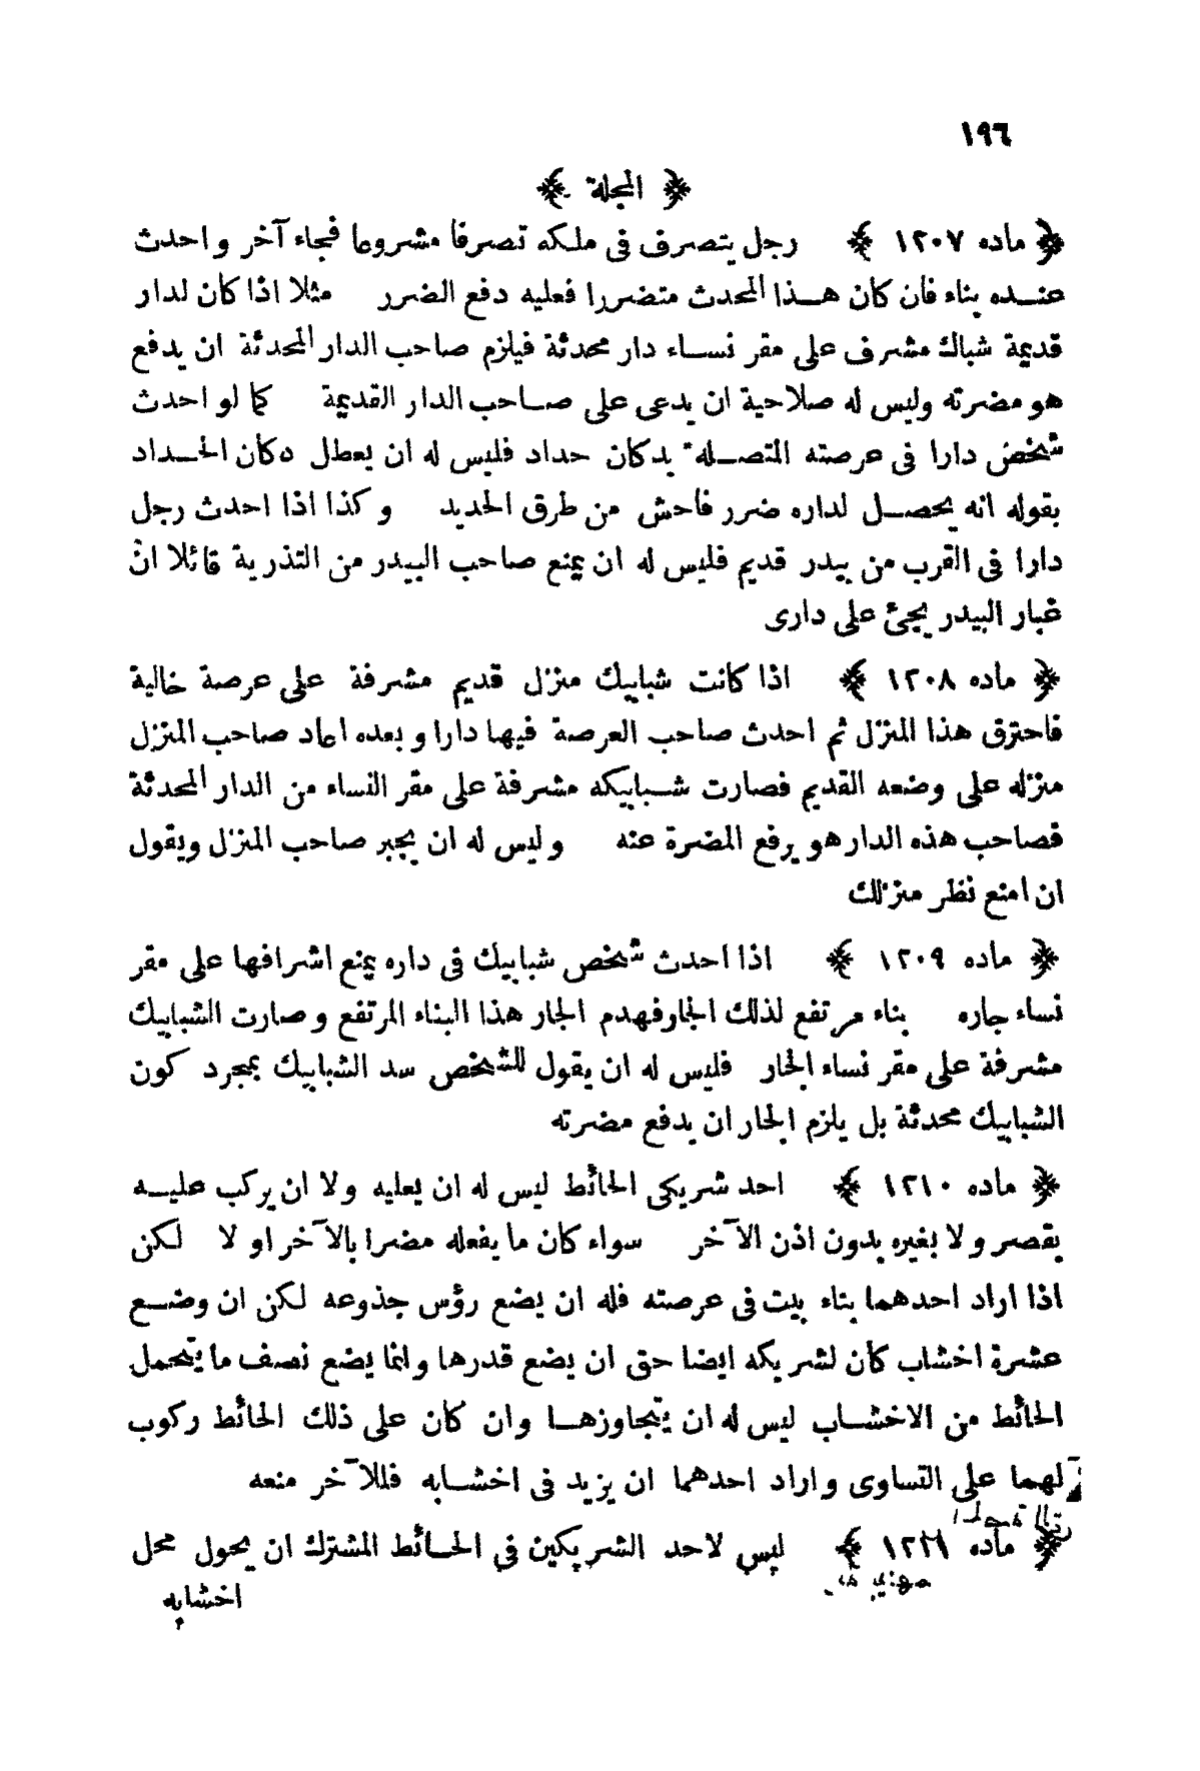 ١٩٦
﴿ المجلة ﴾
﴿ ماده ١٢٠٧ ﴾ رجل يتصرف فى ملكه تصرفا مشروعا فجاء آخر واحدث
عنده بناء فان كان هذا المحدث متضررا فعليه دفع الضرر مثلا اذا كان لدار
قديمة شباك مشرف على مقر نساء دار محدثة فيلزم صاحب الدار المحدثة ان يدفع
هو مضرته وليس له صلاحية ان يدعى على صاحب الدار القديمة كما لو احدث
شخص دارا فى عرصته المتصله بدكان حداد فليس له ان يعطل دكان الحداد
بقوله انه يحصل لداره ضرر فاحش من طرق الحديد وكذا اذا احدث رجل
دارا فى القرب من بيدر قديم فليس له ان يمنع صاحب البيدر من التذرية قائلا ان
غبار البيدر يجئ على دارى
﴿ ماده ١٢٠٨ ﴾ اذا كانت شبابيك منزل قديم مشرفة على عرصة خالية
فاحترق هذا المنزل ثم احدث صاحب العرصة فيها دارا وبعده اعاد صاحب المنزل
منزله على وضعه القديم فصارت شبابيكه مشرفة على مقر النساء من الدار المحدثة
فصاحب هذه الدار هو يرفع المضرة عنه وليس له ان يجبر صاحب المنزل ويقول
ان امنع نظر منزلك
﴿ ماده ١٢٠٩ ﴾ اذا احدث شخص شبابيك فى داره يمنع اشرافها على مقر
نساء جاره بناء مرتفع لذلك الجار فهدم الجار هذا البناء المرتفع وصارت الشبابيك
مشرفة على مقر نساء الجار فليس له ان يقول للشخص سد الشبابيك بمجرد كون
الشبابيك محدثة بل يلزم الجار ان يدفع مضرته
﴿ ماده ١٢١٠ ﴾ احد شريكى الحائط ليس له ان يعليه ولا ان يركب عليه
بقصر ولا بغيره بدون اذن الآخر سواء كان ما يفعله مضرا بالآخر او لا لكن
اذا اراد احدهما بناء بيت فى عرصته فله ان يضع رؤس جذوعه لكن ان وضع
عشرة اخشاب كان لشريكه ايضا حق ان يضع قدرها وانما يضع نصف ما يتحمل
الحائط من الاخشاب ليس له ان يتجاوزها وان كان على ذلك الحائط ركوب
لهما على التساوى واراد احدهما ان يزيد فى اخشابه فللآخر منعه
﴿ ماده ١٢١١ ﴾ ليس لاحد الشريكين فى الحائط المشترك ان يحول محل
اخشابه